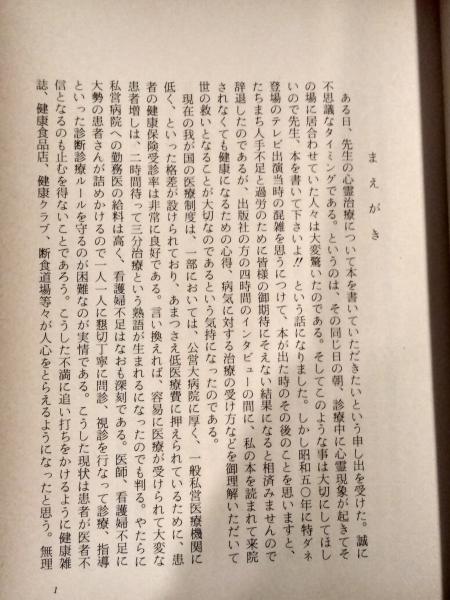 まえがき
ある日、先生の心霊治療について本を書いていただきたいという申し出を受けた。誠に
不思議なタイミングである。というのは、その同じ日の朝、診療中に心霊現象が起きてそ
の場に居合わせていた人々は大変驚いたのである。そしてこのような事は大切にしてほし
いので先生、本を書いて下さいよ!! という話になりました。しかし昭和五〇年に特ダネ
登場のテレビ出演当時の混雑を思うにつけて、本が出た時のその後のことを思いますと、
たちまち人手不足と過労のために皆様の御期待にそえない結果になると相済みませんので
辞退したのであるが、出版社の方の四時間のインタビューの間に、私の本を読まれて来院
されなくても健康になるための心得、病気に対する治療の受け方などを御理解いただいて
世の救いとなることが大切なのであるという気持になったのである。
現在の我が国の医療制度は、一部においては、公営大病院に厚く、一般私営医療機関に
低く、といった格差が設けられており、あまつさえ低医療費に押えられているために、患
者の健康保険受診率は非常に良好である。言い換えれば、容易に医療が受けられて大変な
患者増しは、二時間待って三分治療という熟語が生まれるになったのでも判る。やたらに
私営病院への勤務医の給料は高く、看護婦不足はなおも深刻である。医師、看護婦不足に
大勢の患者さんが詰めかけるので一人一人に懇切丁寧に問診、視診を行なって診療、指導
といった診断診療ルールを守るのが困難なのが実情である。こうした現状は患者が医者不
信となるのも止むを得ないことであろう。こうした不満に追い打ちをかけるように健康雑
誌、健康食品店、健康クラブ、断食道場等々が人心をとらえるようになったと思う。無理
1